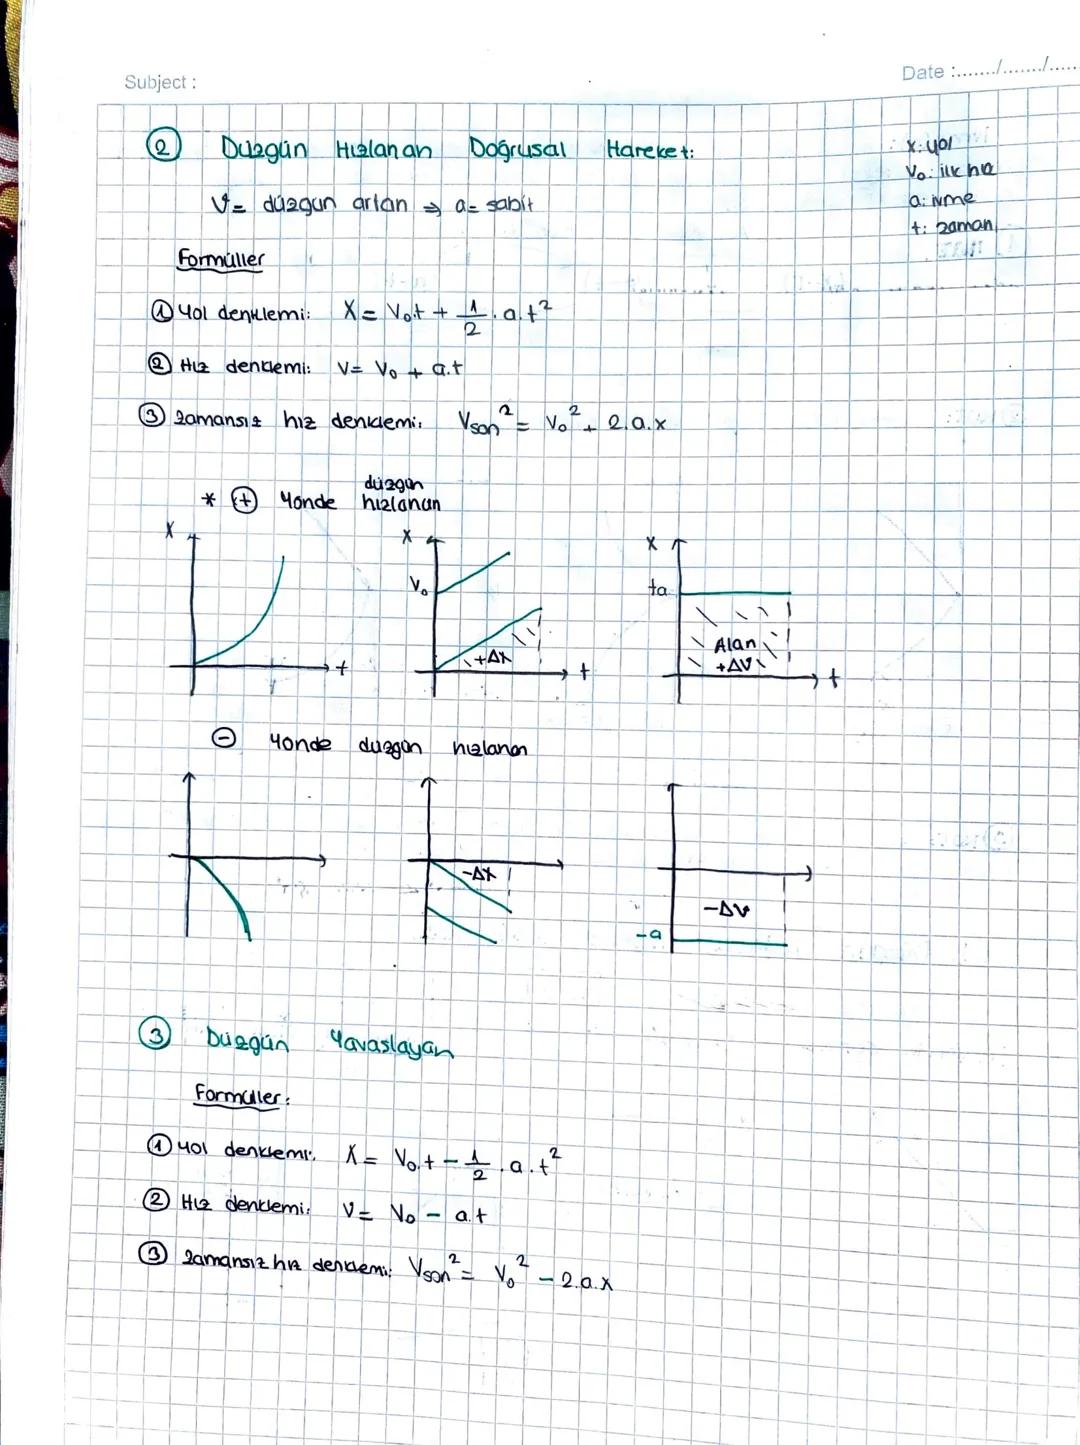 Subject :
Date :......./......../.....
② Düzgün Hızlanan Doğrusal Hareket:
x: yol
V₀: ilk hız
a: ivme
t: zaman
V= düzgün artan ⇒ a= sabit
Formüller
① Yol denklemi: X= V₀.t + 1/2 .a.t²
② Hız denklemi: V= V₀ + a.t
③ Zamansız hız denklemi: Vson² = V₀² + 2.a.x
* ⊕ Yönde düzgün hızlanan
X t
X V₀ +Δx t
X +a Alan +ΔV t
⊖ Yönde düzgün hızlanan
-Δx
-ΔV
-a
③ Düzgün Yavaslayan
Formüller:
① Yol denklemi: X= V₀.t - 1/2 .a.t²
② Hız denklemi: V= V₀ - a.t
③ Zamansız hız denklemi: Vson² = V₀² - 2.a.x